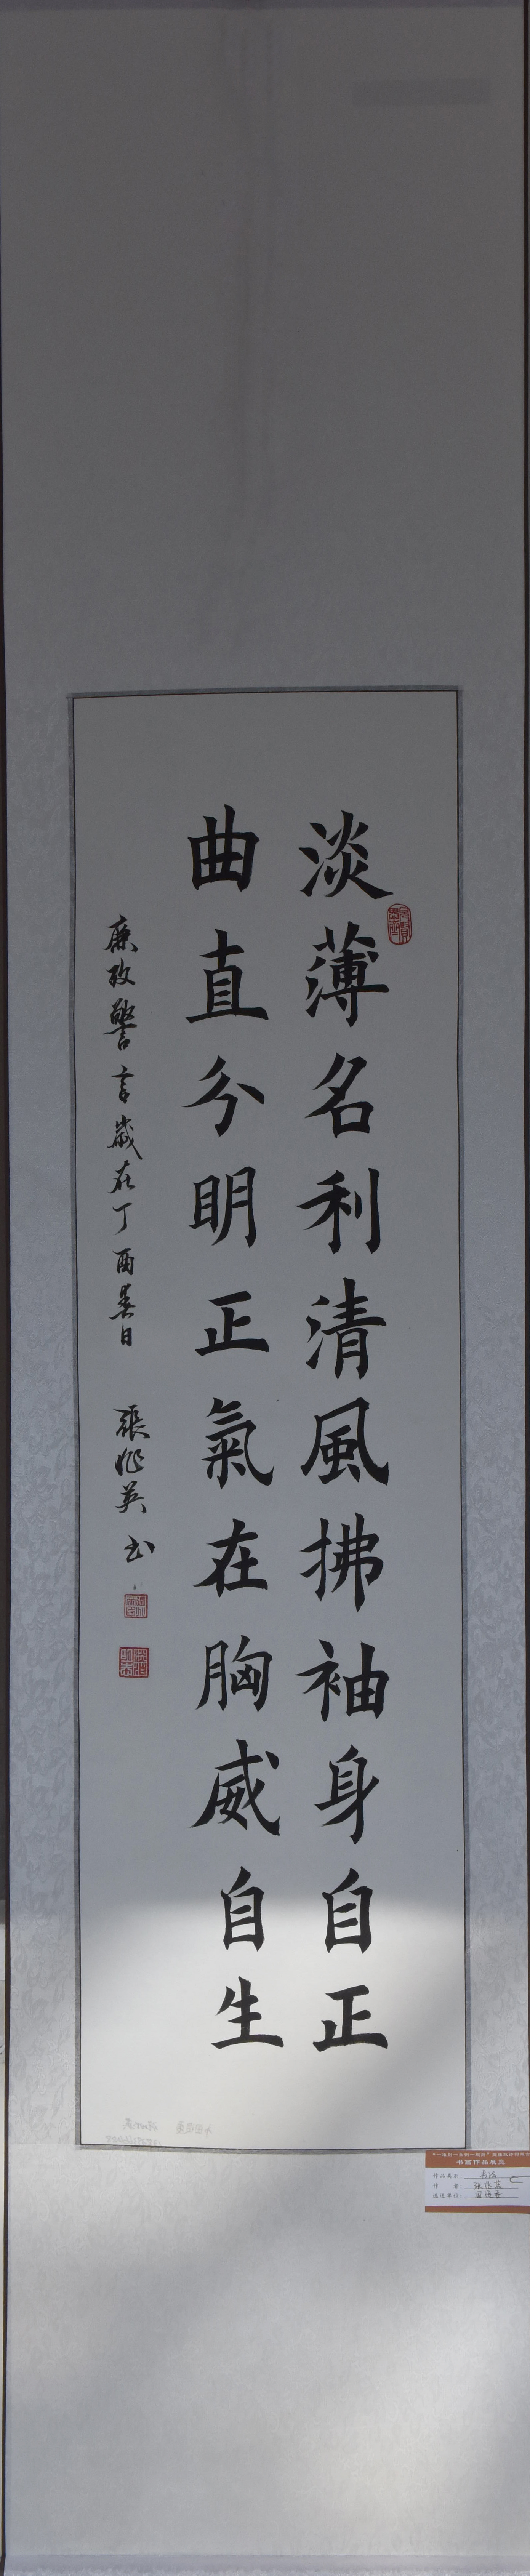 淡薄名利清風拂袖身自正
曲直分明正氣在胸威自生
廉政警言歲在丁酉春日 張兆英书
书画作品展览
作品类别：书法
作 者：
选送单位：